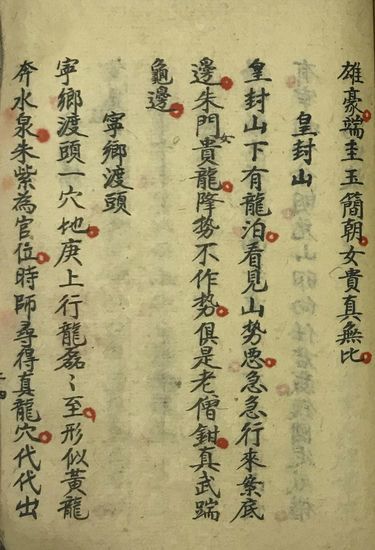 雄豪端圭玉簡朝女貴真無比
皇封山
皇封山下有龍泊看見山勢惡急急行來案底
邊朱門貴龍降勢不作勢俱是老僧鉗真武踹
女
龜邊
寜鄉渡頭
寜鄉渡頭一穴地庚上行龍磊〻至形似黃龍
奔水泉朱紫為官位時師尋得真龍穴代代出